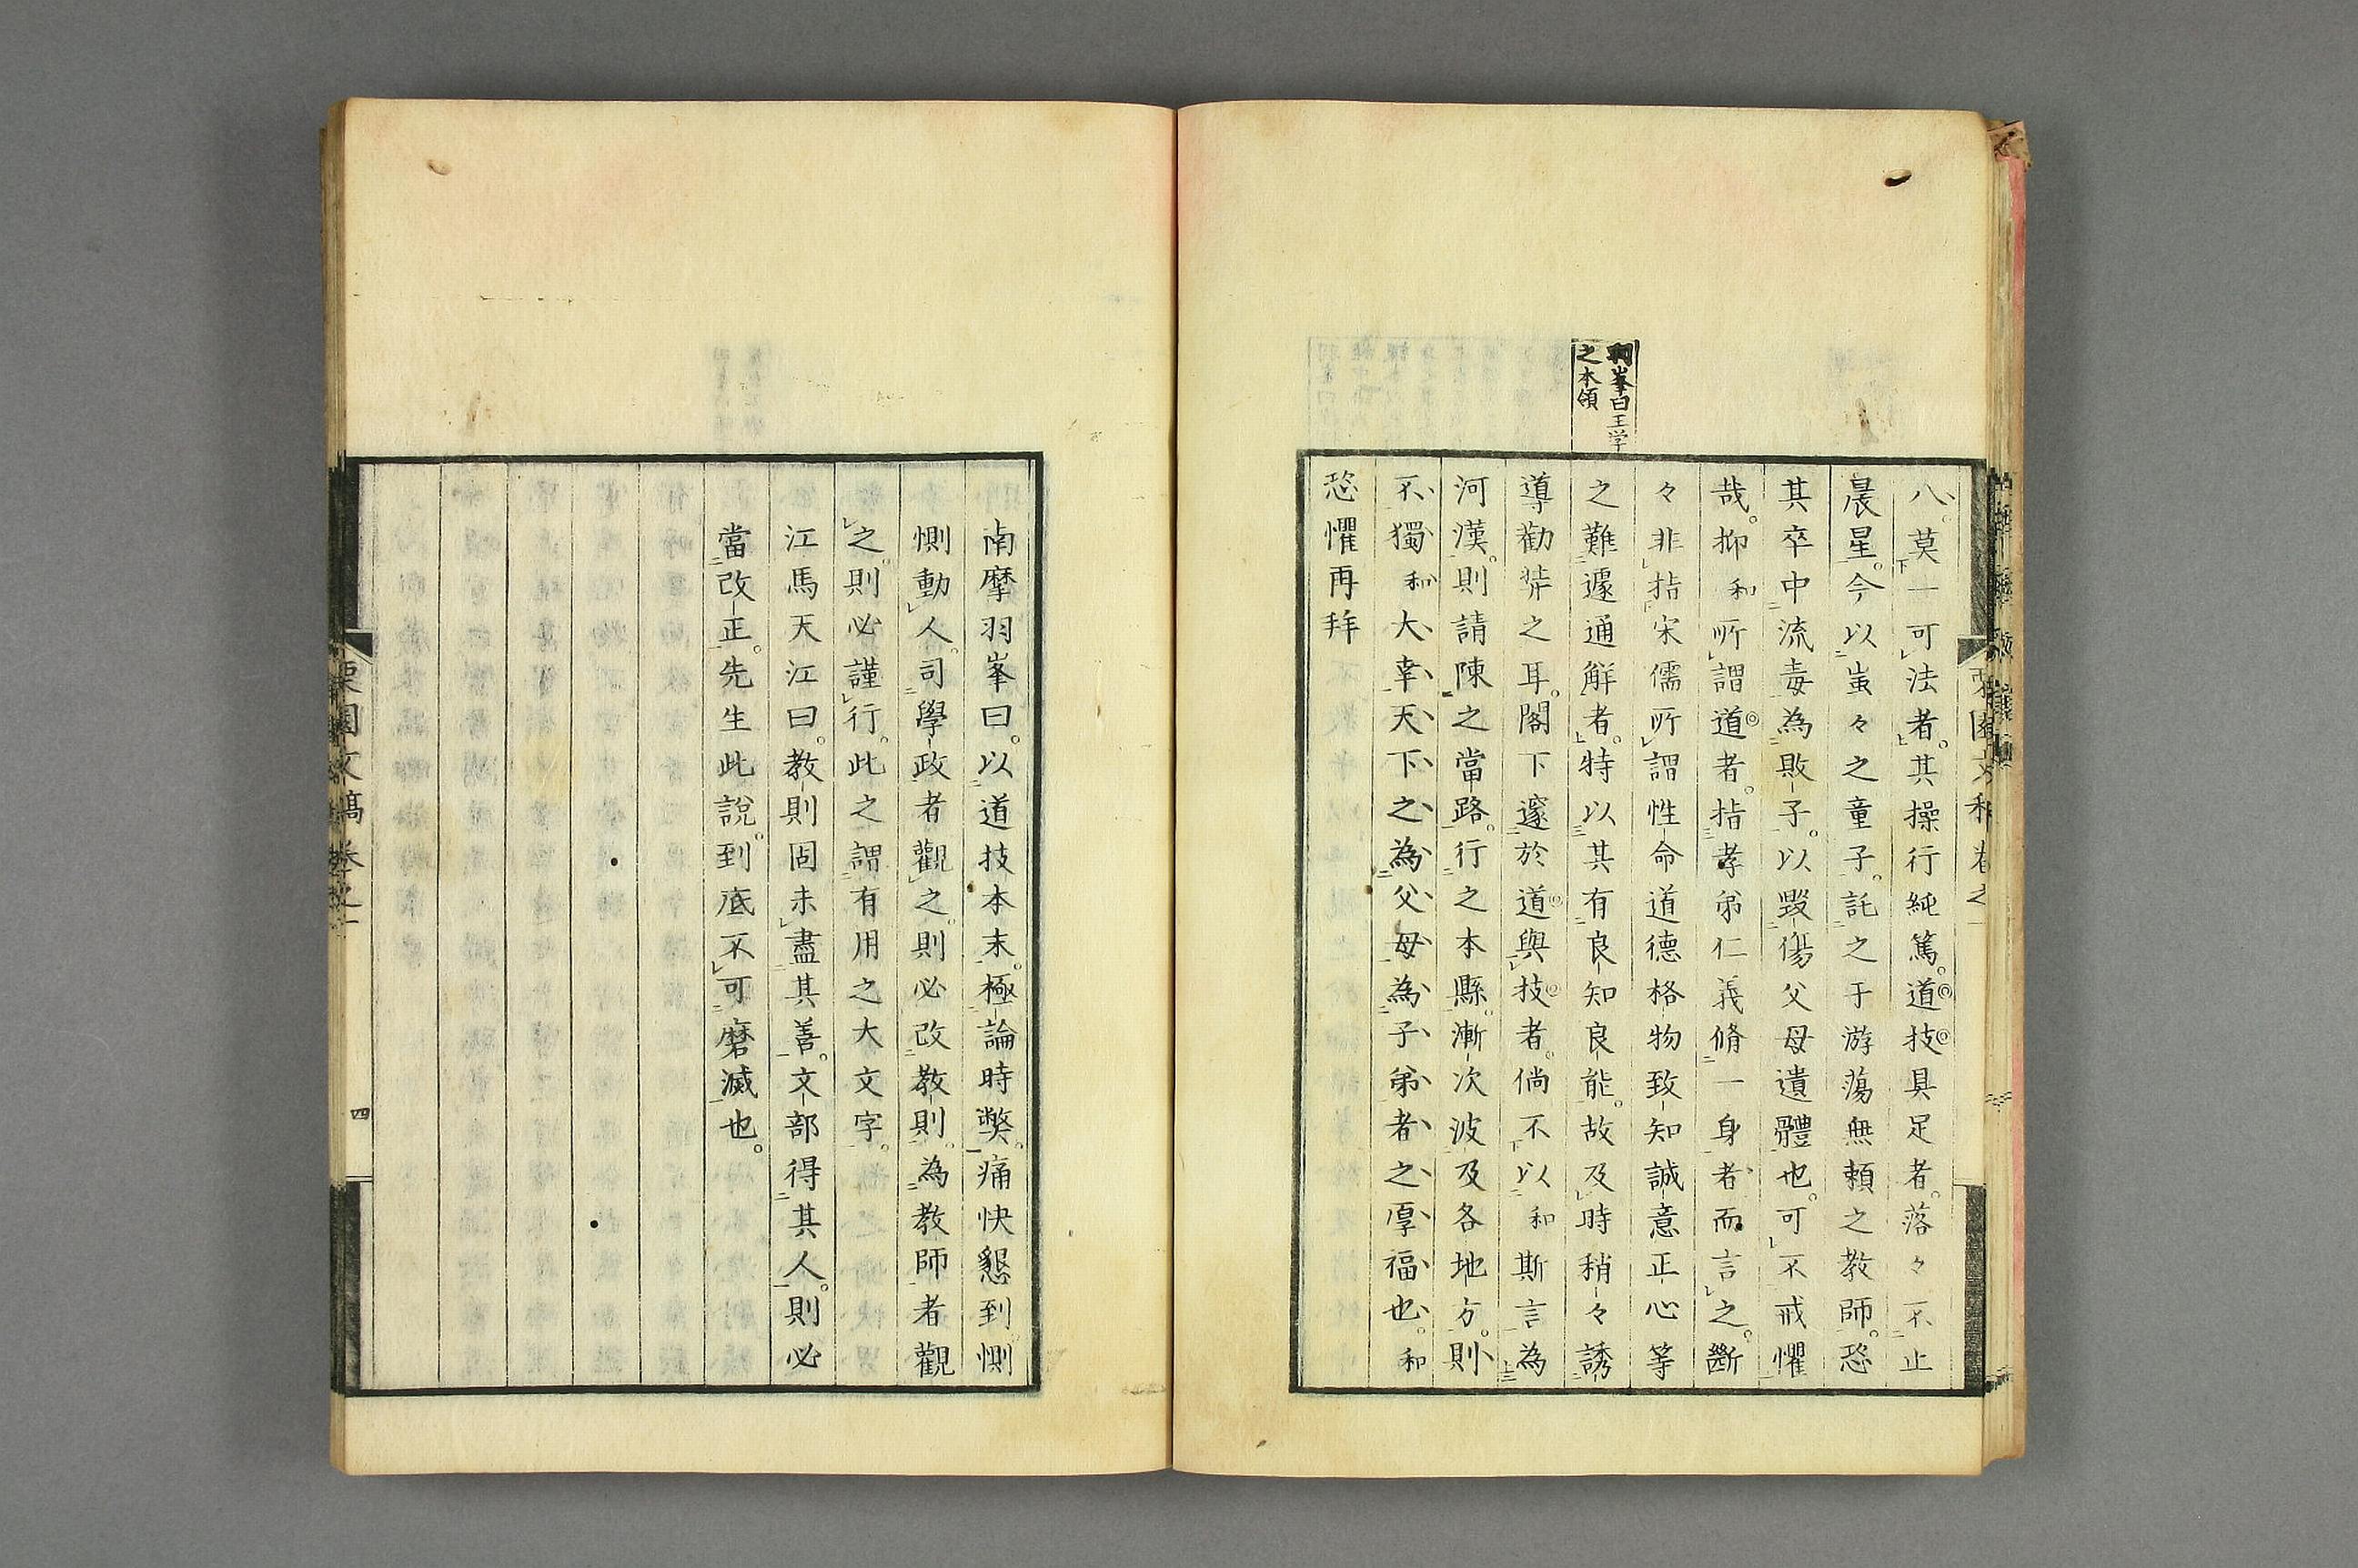 羽峯曰王学
之本領
八。莫一可法者。其操行純篤。道技具足者。落々不止
晨星。今以蚩々之童子。託之于游蕩無頼之教師。恐
其卒中流毒為敗子。以毀傷父母遺體也。可不戒懼
哉。抑和所謂道者。指孝弟仁義脩一身者而言之。斷
々非指宋儒所謂性命道德格物致知誠意正心等
之難遽通解者。特以其有良知良能。故及時稍々誘
導勸弉之耳。閣下邃於道與技者。倘不以和斯言為
河漢。則請陳之當路。行之本縣。漸次波及各地方。則
不獨和大幸。天下之為父母為子弟者之厚福也。和
恐懼再拜
南摩羽峯曰。以道技本末。極論時獘。痛快懇到惻
惻動人。司學政者觀之。則必改教則。為教師者觀
之。則必謹行。此之謂有用之大文字。
江馬天江曰。教則固未盡其善。文部得其人。則必
當改正。先生此說。到底不可磨滅也。
栗園文稿 卷之一
四